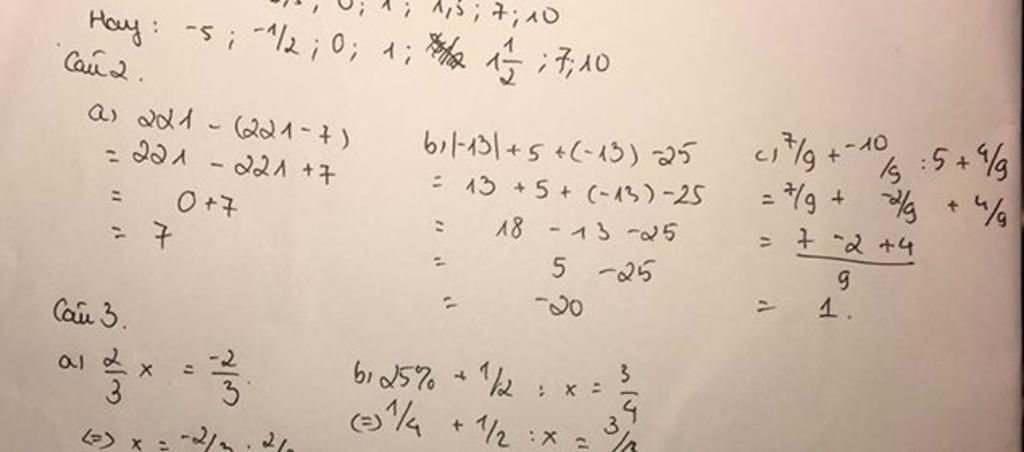 0; 1; 1,5; 7; 10
Hay: -5; -1/2; 0; 1; 1 1/2; 7; 10
Câu 2.
a) 221 - (221 - 7)
= 221 - 221 + 7
= 0 + 7
= 7
b) |-13| + 5 + (-13) - 25
= 13 + 5 + (-13) - 25
= 18 - 13 - 25
= 5 - 25
= -20
c) 7/9 + -10/9 : 5 + 4/9
= 7/9 + -2/9 + 4/9
= (7 - 2 + 4)/9
= 1.
Câu 3.
a) 2/3 x = -2/3.
(=) x = -2/3 .
b) 25% + 1/2 : x = 3/4
(=) 1/4 + 1/2 : x =